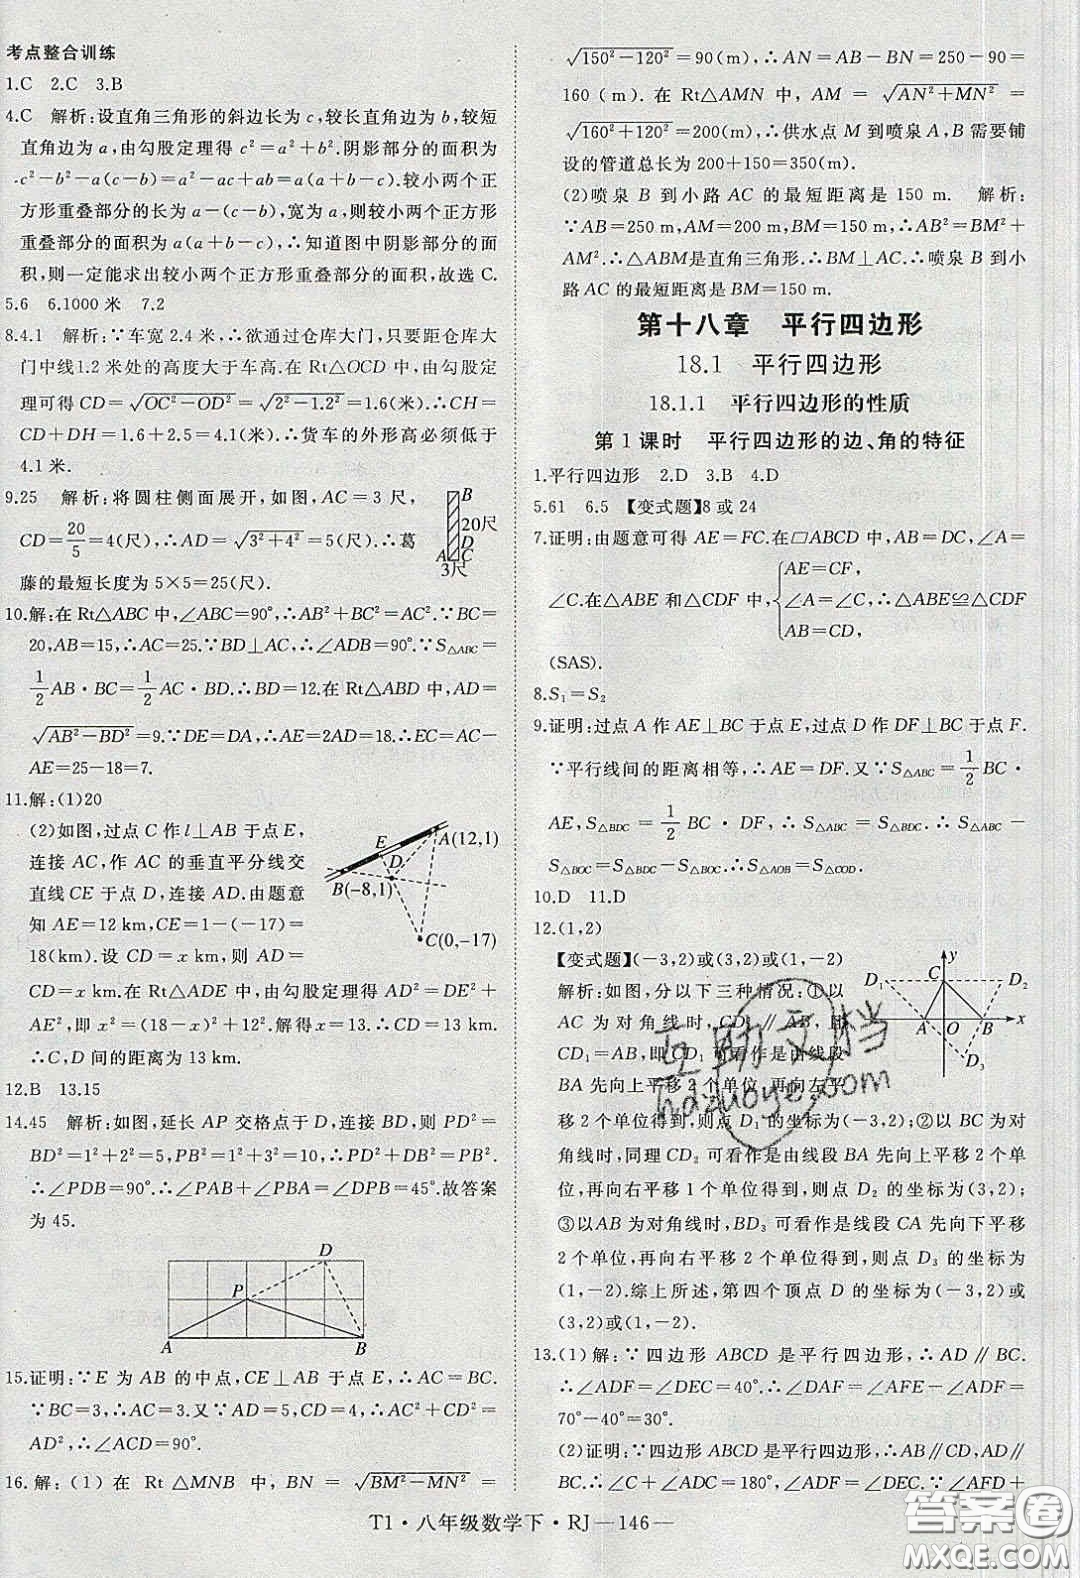 考点整合训练
1.C 2.C 3.B
4.C 解析:设直角三角形的斜边长为c,较长直角边为b,较短
直角边为a,由勾股定理得c²=a²+b².阴影部分的面积为
c²-b²-a(c-b)=a²-ac+ab=a(a+b-c).较小两个正
方形重叠部分的长为a-(c-b),宽为a,则较小两个正方形
重叠部分的面积为a(a+b-c),∴知道图中阴影部分的面
积,则一定能求出较小两个正方形重叠部分的面积,故选C.
5.6 6.1000米 7.2
8.4.1 解析:∵车宽2.4米,∴欲通过仓库大门,只要距仓库大
门中线1.2米处的高度大于车高.在Rt△OCD中,由勾股定
理可得CD=√(OC²-OD²)=√(2²-1.2²)=1.6(米),∴CH=
CD+DH=1.6+2.5=4.1(米),∴货车的外形高必须低于
4.1米.
9.25 解析:将圆柱侧面展开,如图,AC=3尺,
CD=20/5=4(尺),∴AD=√(3²+4²)=5(尺).∴葛
藤的最短长度为5×5=25(尺).
B
20尺
D
A C
3尺
10.解:在Rt△ABC中,∠ABC=90°,∴AB²+BC²=AC².∵BC=
20,AB=15,∴AC=25.∵BD⊥AC,∴∠ADB=90°.∵S△ABC=
1/2 AB·BC=1/2 AC·BD.∴BD=12.在Rt△ABD中,AD=
√(AB²-BD²)=9.∵DE=DA,∴AE=2AD=18.∴EC=AC-
AE=25-18=7.
11.解:(1)20
(2)如图,过点C作l⊥AB于点E,
连接AC,作AC的垂直平分线交
直线CE于点D,连接AD.由题意
知AE=12 km,CE=1-(-17)=
18(km).设CD=x km,则AD=
CD=x km.在Rt△ADE中,由勾股定理得AD²=DE²+
AE²,即x²=(18-x)²+12².解得x=13.∴CD=13 km.
∴C,D间的距离为13 km.
E
A(12,1)
D
B(-8,1)
C(0,-17)
12.B 13.15
14.45 解析:如图,延长AP交格点于D,连接BD,则PD²=
BD²=1²+2²=5,PB²=1²+3²=10,∴PD²+BD²=PB².
∴∠PDB=90°.∴∠PAB+∠PBA=∠DPB=45°.故答案
为45.
D
P
A B
15.证明:∵E为AB的中点,CE⊥AB于点E,∴AC=BC.
∵BC=3,∴AC=3.又∵AD²=9+CD²,∴AC²+CD²=
AD²,∴∠ACD=90°.
16.解:(1)在Rt△MNB中,BN=√(BM²-MN²)=
√(150²-120²)=90(m),∴AN=AB-BN=250-90=
160(m).在Rt△AMN中,AM=√(AN²+MN²)=
√(160²+120²)=200(m),∴供水点M到喷泉A,B需要铺
设的管道总长为200+150=350(m).
(2)喷泉B到小路AC的最短距离是150 m. 解析:
∵AB=250 m,AM=200 m,BM=150 m,∴AB²=BM²+
AM².∴△ABM是直角三角形.∴BM⊥AC.∴喷泉B到小
路AC的最短距离是BM=150 m.
第十八章 平行四边形
18.1 平行四边形
18.1.1 平行四边形的性质
第1课时 平行四边形的边、角的特征
1.平行四边形 2.D 3.B 4.D
5.61 6.5 【变式题】8或24
7.证明:由题意可得AE=FC.在▱ABCD中,AB=CD,∠A=
∠C.在△ABE和△CDF中,{AE=CF,
∠A=∠C,∴△ABE≌△CDF
AB=CD,
(SAS).
8.S₁=S₂
9.证明:过点A作AE⊥BC于点E,过点D作DF⊥BC于点F.
∵平行线间的距离相等,∴AE=DF.又∵S△ABC=1/2 BC·
AE,S△BDC=1/2 BC·DF,∴S△ABC=S△BDC.∴S△ABC-
S△BOC=S△BDC-S△BOC.∴S△AOB=S△COD.
10.D 11.D
12.(1,2)
【变式题】(-3,2)或(3,2)或(1,-2)
解析:如图,分以下三种情况:①以
AC为对角线时,CD₁∥AB,即
CD₁=AB.CD₁可看作是由线段
BA先向上平移2个单位,再向左平
移2个单位得到,则点D₁的坐标为(-3,2);②以BC为
对角线时,同理CD₂可看作是线段BA先向上平移2个单
位,再向右平移2个单位得到,则点D₂的坐标为(3,2);
③以AB为对角线时,BD₃可看作是线段CA先向下平移
2个单位,再向右平移2个单位得到,点D₃的坐标为
(1,-2).综上所述,第四个顶点D的坐标为(-3,2)或
(3,2)或(1,-2).
y
D₁ C D₂
A O B x
D₃
13.(1)解:∵四边形ABCD是平行四边形,∴AD∥BC.
∴∠ADF=∠DEC=40°.∴∠DAF=∠AFE-∠ADF=
70°-40°=30°.
(2)证明:∵四边形ABCD是平行四边形,∴AB∥CD,
AD∥BC.∴∠B+∠C=180°,∠ADF=∠DEC.∵∠AFD+
T1·八年级数学下·RJ—146—
互助文档
hdzuoye.com
答案圈
MXQE.COM